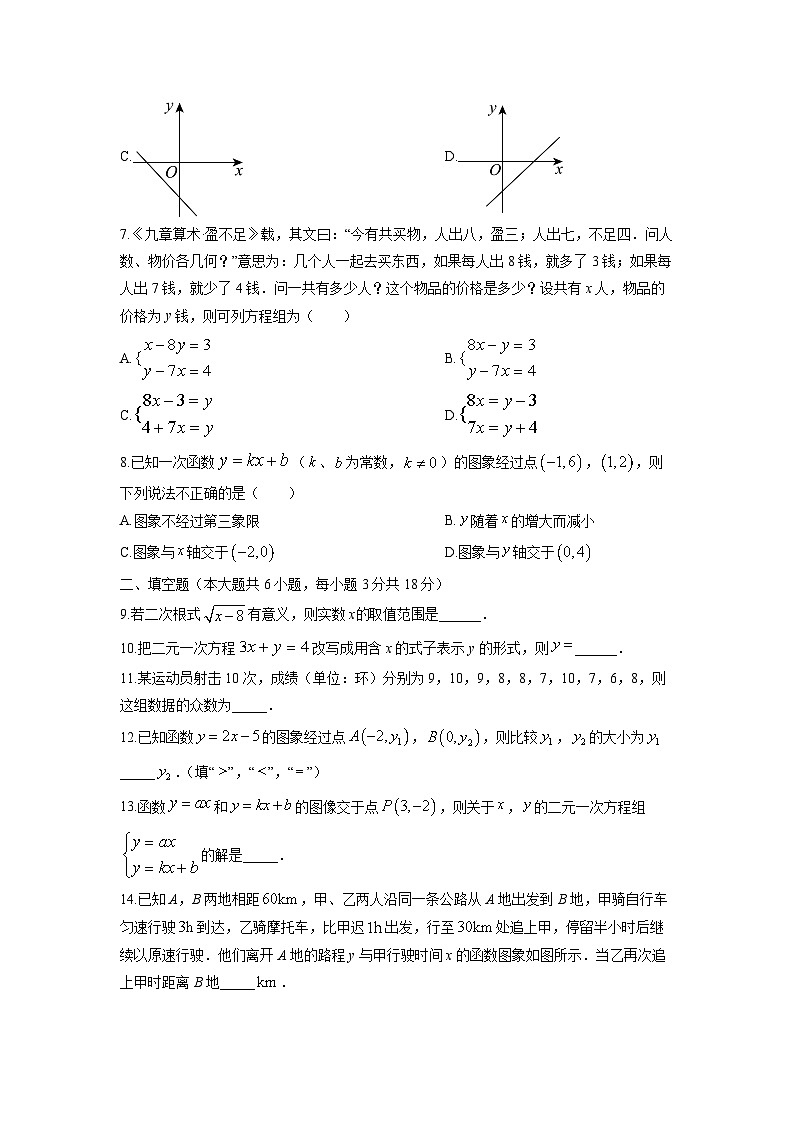 y y
C. O x D. O x
7.《九章算术·盈不足》载，其文曰：“今有共买物，人出八，盈三；人出七，不足四．问人
数、物价各几何？”意思为：几个人一起去买东西，如果每人出 8 钱，就多了 3 钱；如果每
人出 7 钱，就少了 4 钱．问一共有多少人？这个物品的价格是多少？设共有 x 人，物品的
价格为 y 钱，则可列方程组为（　　）
A. { x－8y＝3 B. { 8x－y＝3
y－7x＝4 y－7x＝4
C. { 8x－3＝y D. { 8x＝y－3
4＋7x＝y 7x＝y＋4
8.已知一次函数 y＝kx＋b（k、b 为常数，k≠0）的图象经过点 (−1,6)，(1,2)，则
下列说法不正确的是（　　）
A.图象不经过第三象限 B. y 随着 x 的增大而减小
C.图象与 x 轴交于 (−2,0) D.图象与 y 轴交于 (0,4)
二、填空题（本大题共 6 小题，每小题 3 分共 18 分）
9.若二次根式 √(x−8) 有意义，则实数 x的取值范围是______．
10.把二元一次方程 3x＋y＝4 改写成用含 x 的式子表示 y 的形式，则 y＝______．
11.某运动员射击 10 次，成绩（单位：环）分别为 9，10，9，8，8，7，10，7，6，8，则
这组数据的众数为_____．
12.已知函数 y＝2x−5 的图象经过点 A(−2,y₁)，B(0,y₂)，则比较 y₁，y₂ 的大小为 y₁
_____y₂．（填“ >”，“ <”，“ = ”）
13.函数 y＝ax 和 y＝kx＋b 的图像交于点 P(3,−2)，则关于 x，y 的二元一次方程组
{ y＝ax
y＝kx＋b 的解是_____．
14.已知 A，B 两地相距 60km，甲、乙两人沿同一条公路从 A 地出发到 B 地，甲骑自行车
匀速行驶 3h 到达，乙骑摩托车，比甲迟 1h 出发，行至 30km 处追上甲，停留半小时后继
续以原速行驶．他们离开 A 地的路程 y 与甲行驶时间 x 的函数图象如图所示．当乙再次追
上甲时距离 B 地_____km．